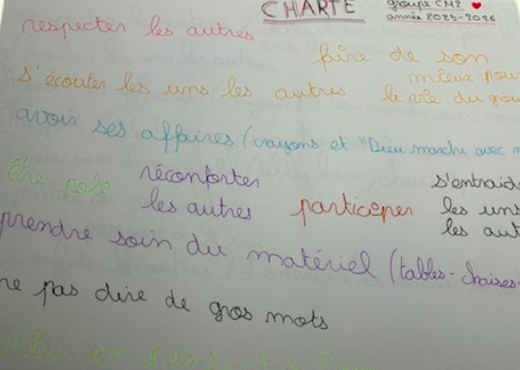 CHARTE
groupe CM2
année 2025-2026
respecter les autres
faire de son
mieux pour
la vie du grou
s'écouter les uns les autres
avoir ses affaires (crayons et "Dieu marche avec n
être poli
réconforter
les autres
participer
s'entraid
les uns
les aut
prendre soin du matériel (tables-chaises-
ne pas dire de gros mots
en pensant à